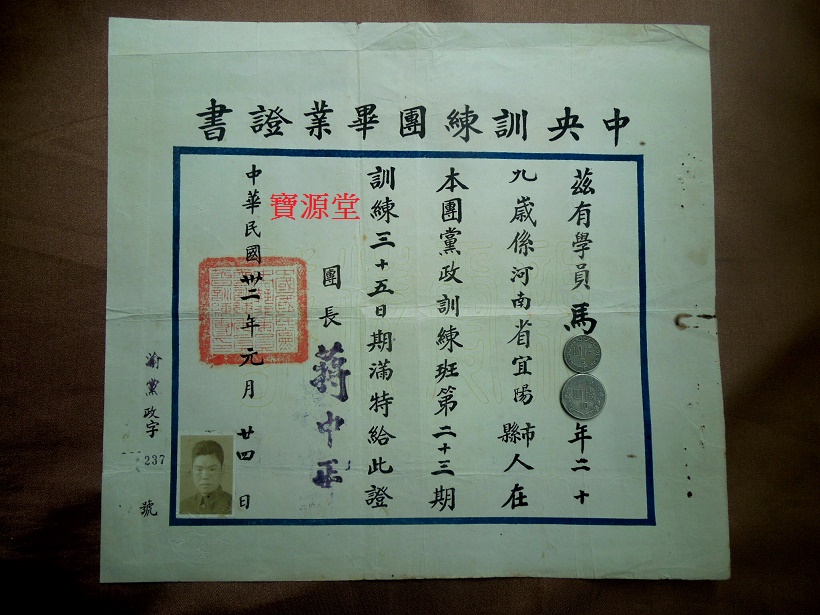 中央訓練團畢業證書
茲有學員馬年二十
九歲係河南省宜陽縣市人在
本團黨政訓練班第二十三期
訓練三十五日期滿特給此證
團長蔣中正
中華民國卅二年元月廿四日
渝黨政字237號
寶源堂